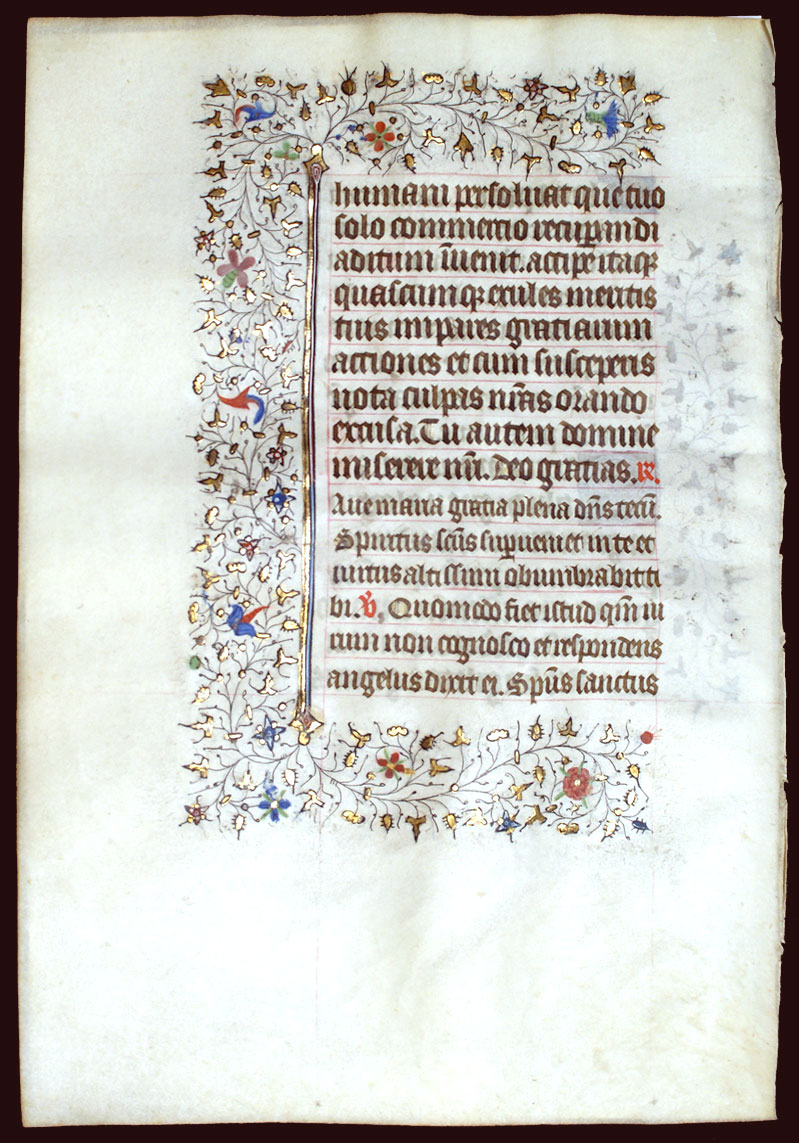 humani persoluat que tuo
solo commertio recuperandi
aditum īuenit. accipe itaqꝫ
quascumqꝫ exiles meritis
tuis impares gratiarum
acciones et cum susceperis
uota culpas nr̄as orando
excusa. Tu autem domine
miserere nr̄i. Deo gratias. R̷.
Aue maria gratia plena dn̄s tecū.
Spiritus scūs superueniet in te et
uirtus altissimi obumbrabit ti
bi. V̷. Quomodo fiet istud qm̄ ui
rum non cognosco et respondens
angelus dixit ei. Spūs sanctus